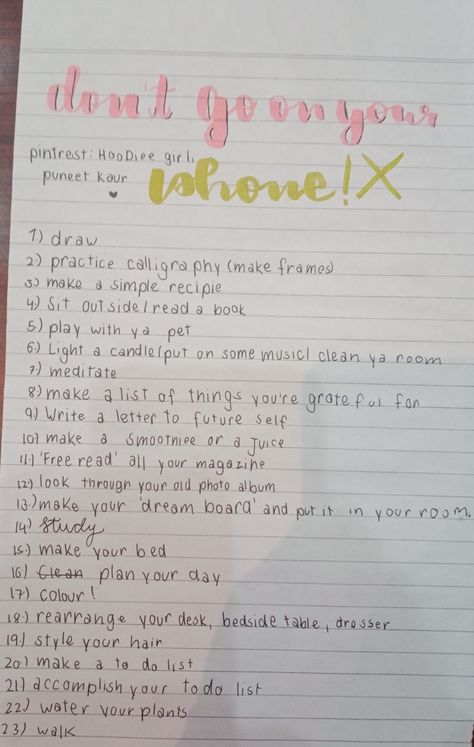 don't go on your
pintrest: HooDiee girl,
puneet kaur
phone! X
1.) draw
2) practice calligraphy (make frames)
3) make a simple recipie
4) Sit outside/read a book
5) play with ya pet
6) Light a candle/put on some music/ clean ya room
7) meditate
8) make a list of things you're grateful for
9) Write a letter to future self
10) make a smoothiee or a juice
11.) 'Free read' all your magazine
12) look through your old photo album
13.) make your 'dream board' and put it in your room.
14) study
15) make your bed
16) clean plan your day
17) colour!
18) rearrange your desk, bedside table, drosser
19) style your hair
20) make a to do list
21) accomplish your to do list
22) water your plants
23) walk